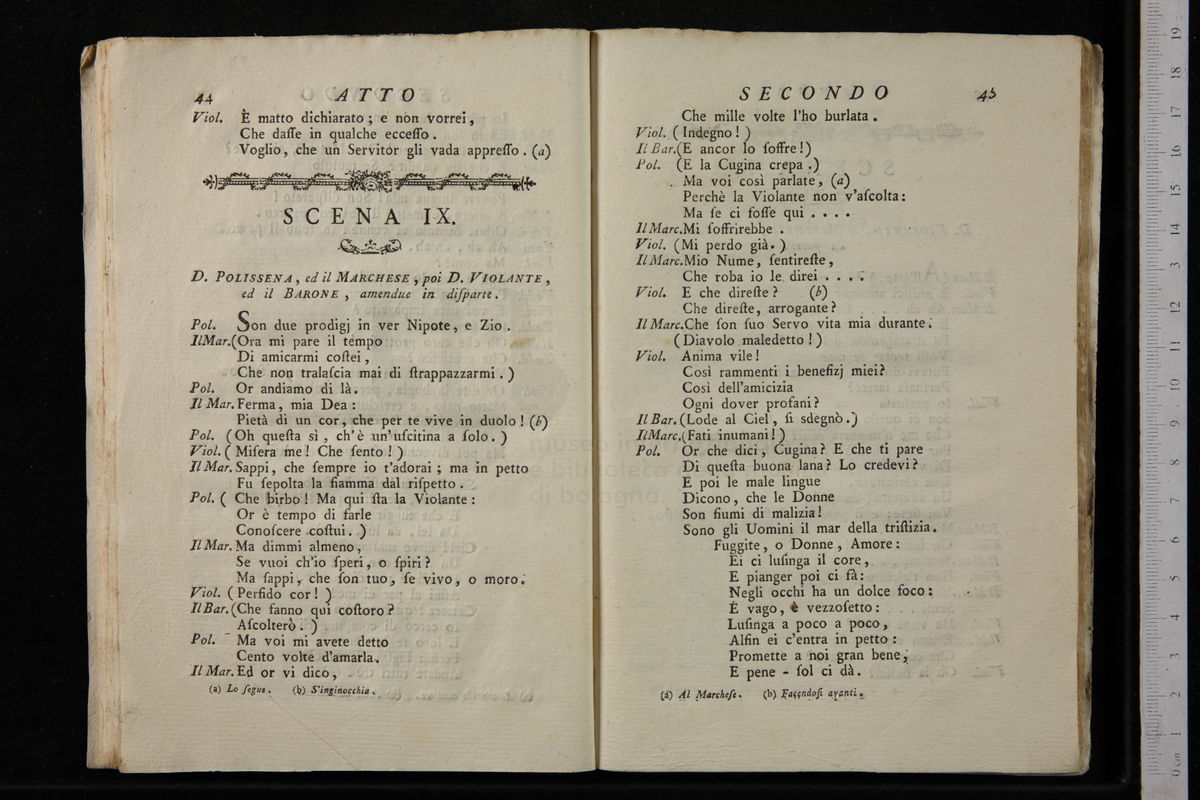 44 ATTO
Viol. È matto dichiarato; e non vorrei,
Che daſſe in qualche ecceſſo.
Voglio, che un Servitor gli vada appreſſo. (a)
SCENA IX.
D. POLISSENA, ed il MARCHESE, poi D. VIOLANTE,
ed il BARONE, amendue in diſparte.
Pol. Son due prodigj in ver Nipote, e Zio.
Il Mar. (Ora mi pare il tempo
Di amicarmi coſtei,
Che non tralaſcia mai di ſtrappazzarmi.)
Pol. Or andiamo di là.
Il Mar. Ferma, mia Dea:
Pietà di un cor, che per te vive in duolo! (b)
Pol. (Oh queſta sì, ch'è un'uſcitina a ſolo.)
Viol. (Miſera me! Che ſento!)
Il Mar. Sappi, che ſempre io t'adorai; ma in petto
Fu ſepolta la fiamma dal riſpetto.
Pol. (Che birbo! Ma qui ſta la Violante:
Or è tempo di farle
Conoſcere coſtui.)
Il Mar. Ma dimmi almeno,
Se vuoi ch'io ſperi, o ſpiri?
Ma ſappi, che ſon tuo, ſe vivo, o moro.
Viol. (Perfido cor!)
Il Bar. (Che fanno qui coſtoro?
Aſcolterò.)
Pol. Ma voi mi avete detto
Cento volte d'amarla.
Il Mar. Ed or vi dico,
(a) Lo ſegue. (b) S'inginocchia.
SECONDO 45
Che mille volte l'ho burlata.
Viol. (Indegno!)
Il Bar. (E ancor lo ſoffre!)
Pol. (E la Cugina crepa.)
Ma voi così parlate, (a)
Perchè la Violante non v'aſcolta:
Ma ſe ci foſſe qui ....
Il Marc. Mi ſoffrirebbe.
Viol. (Mi perdo già.)
Il Marc. Mio Nume, ſentireſte,
Che roba io le direi ....
Viol. E che direſte? (b)
Che direſte, arrogante?
Il Marc. Che ſon ſuo Servo vita mia durante.
(Diavolo maledetto!)
Viol. Anima vile!
Così rammenti i benefizj miei?
Così dell'amicizia
Ogni dover profani?
Il Bar. (Lode al Ciel, ſi sdegnò.)
Il Marc. (Fati inumani!)
Pol. Or che dici, Cugina? E che ti pare
Di queſta buona lana? Lo credevi?
E poi le male lingue
Dicono, che le Donne
Son fiumi di malizia!
Sono gli Uomini il mar della triſtizia.
Fuggite, o Donne, Amore:
Ei ci luſinga il core,
E pianger poi ci fà:
Negli occhi ha un dolce foco:
È vago, è vezzoſetto:
Luſinga a poco a poco,
Alfin ei c'entra in petto:
Promette a noi gran bene,
E pene - ſol ci dà.
(a) Al Marcheſe. (b) Facendoſi avanti.
museo in
e biblioteca
di bologna
0 cm 1 2 3 4 5 6 7 8 9 10 11 12 13 14 15 16 17 18 19